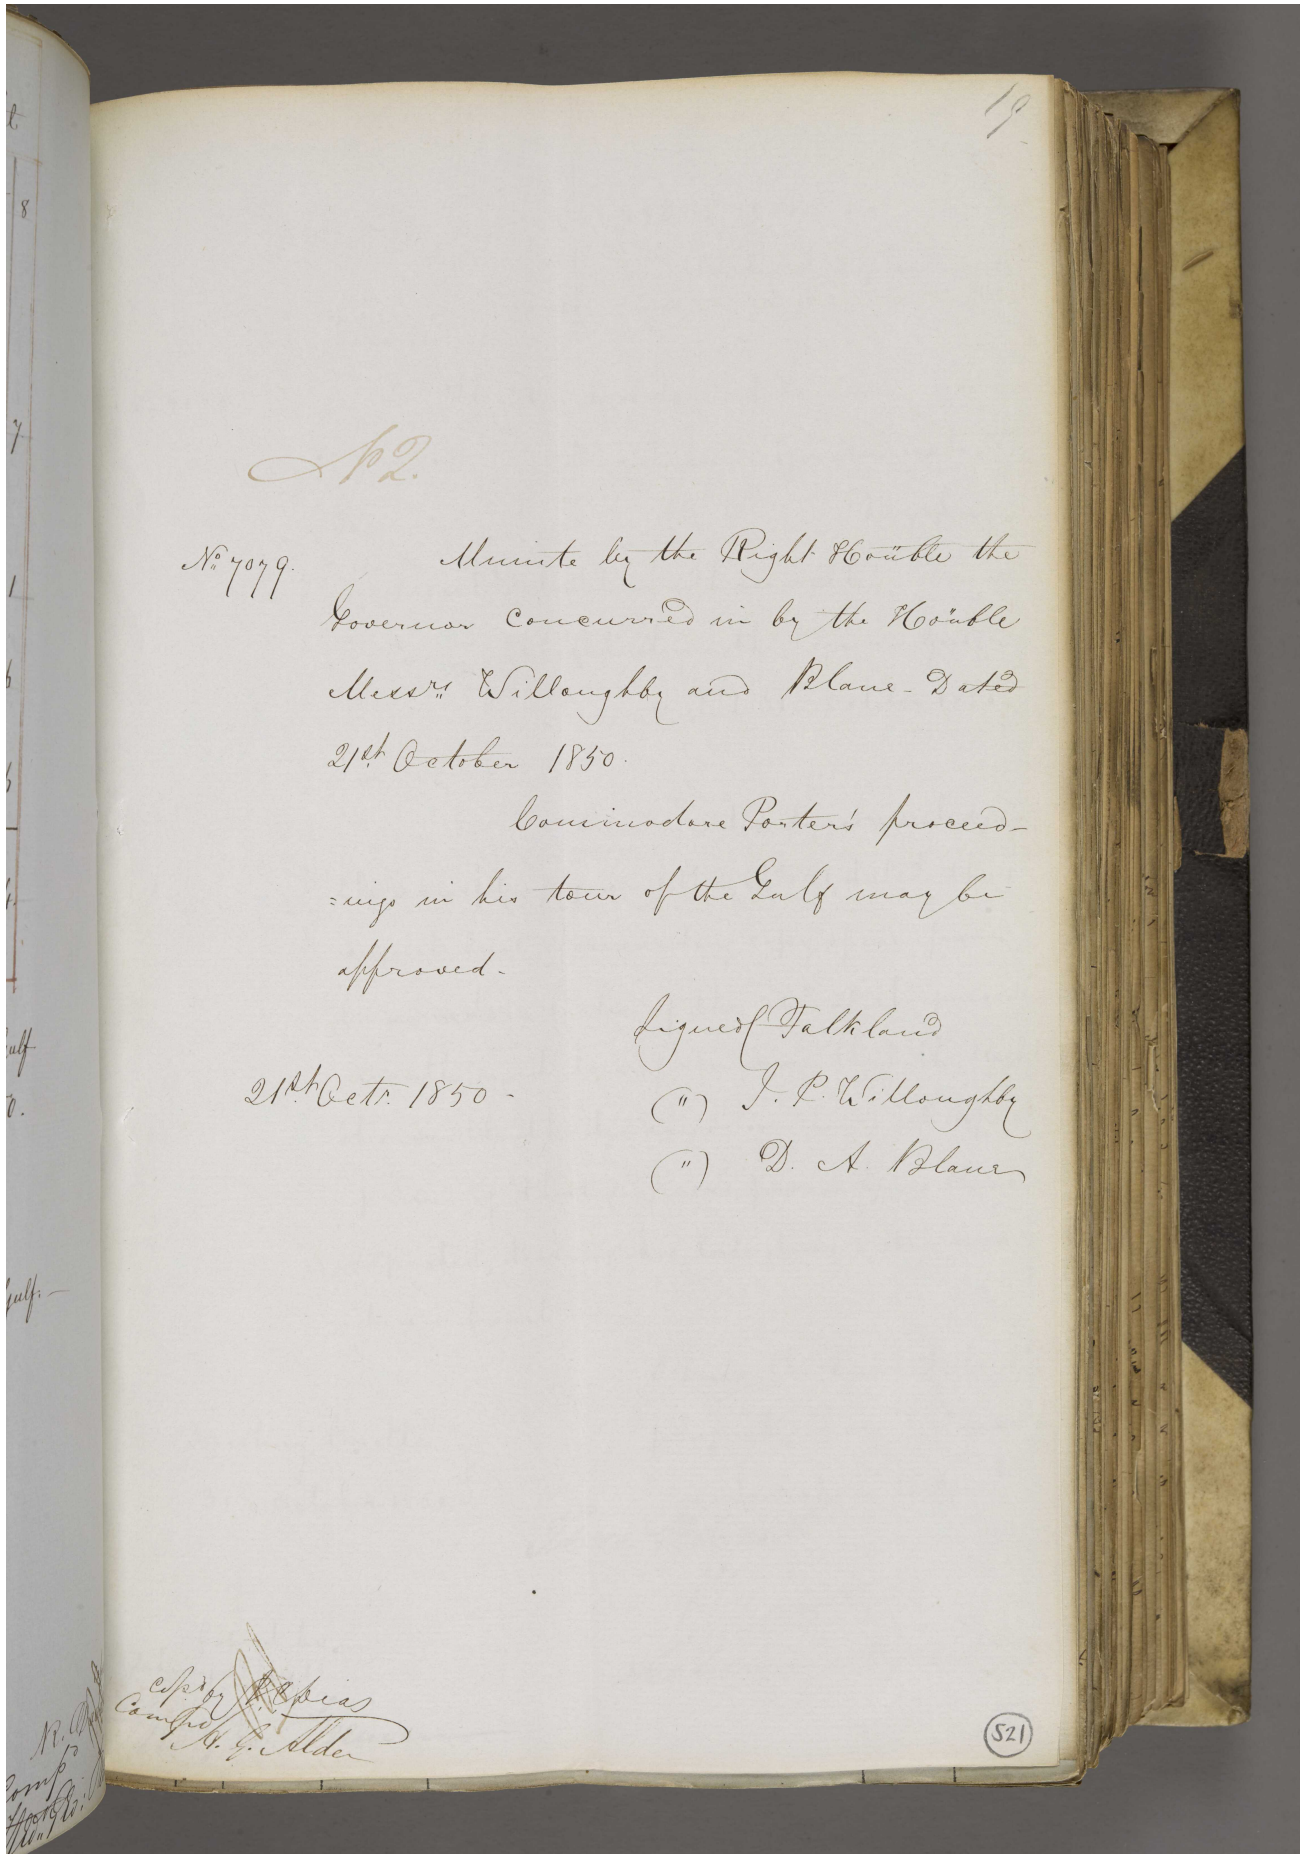 19
No 2.
No. 7079. Minute by the Right Honble the
Governor concurred in by the Honble
Messrs Willoughby and Blane - Dated
21st October 1850.
Commodore Porter's proceed-
=ings in his tour of the Gulf may be
approved -
Signed/ Falkland
21st Octr. 1850 - (") J. P. Willoughby
(") D. A. Blane
copd by
Compd
H. G. Alden
521
8
7
1
6
Gulf
Gulf. -
Compd